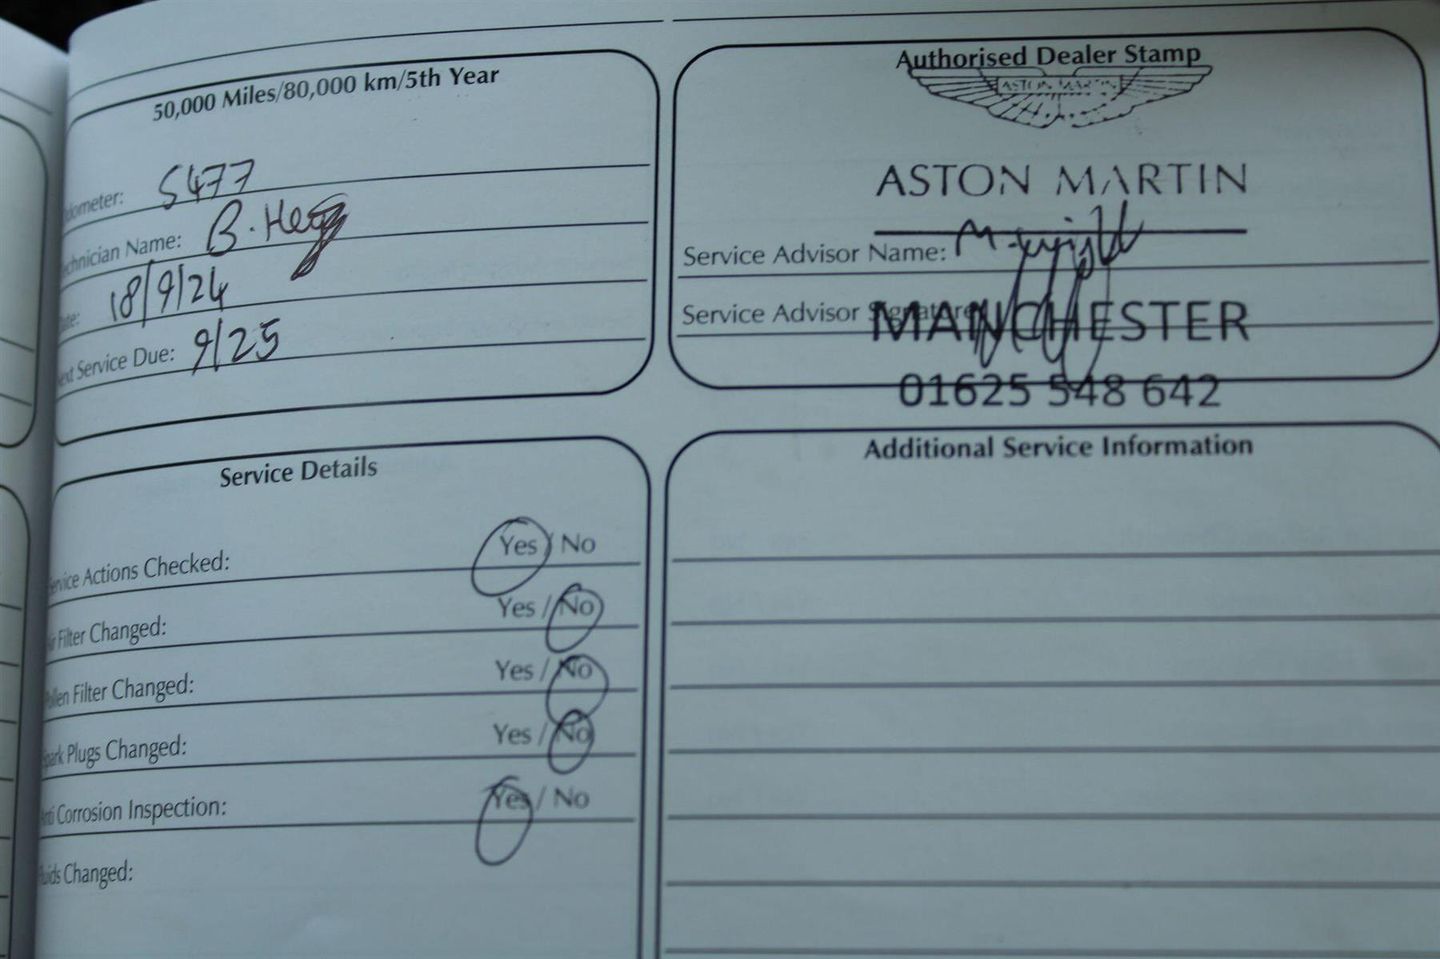 50,000 Miles/80,000 km/5th Year
dometer: 5477
chnician Name: B.
ate: 18/9/24
ext Service Due: 9/25
Authorised Dealer Stamp
ASTON MARTIN
ASTON MARTIN
Service Advisor Name: M.
Service Advisor Signature
MANCHESTER
01625 548 642
Service Details
rvice Actions Checked: Yes / No
ir Filter Changed: Yes / No
ollen Filter Changed: Yes / No
park Plugs Changed: Yes / No
nti Corrosion Inspection: Yes / No
luids Changed:
Additional Service Information